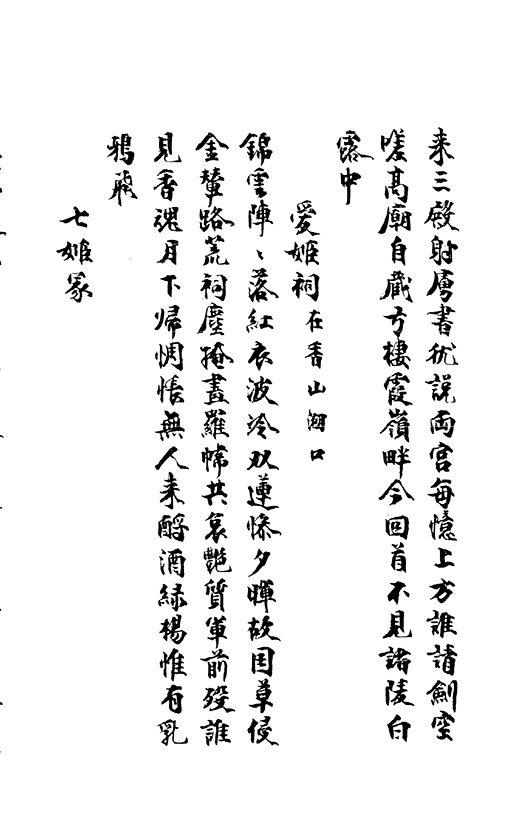 来三殿射虜書犹説両宮每憶上方誰請劍空
嗟高廟自蔵弓棲霞嶺畔今回首不見諸陵白
露中
愛姬祠 在香山湖口
錦雲陣〻落紅衣波冷双蓮惨夕暉故国草侵
金輦路荒祠塵掩畫羅幃共哀艶質軍前歿誰
見香魂月下帰惆悵無人来酹酒緑楊惟有乳
鴉飛
七姬冢